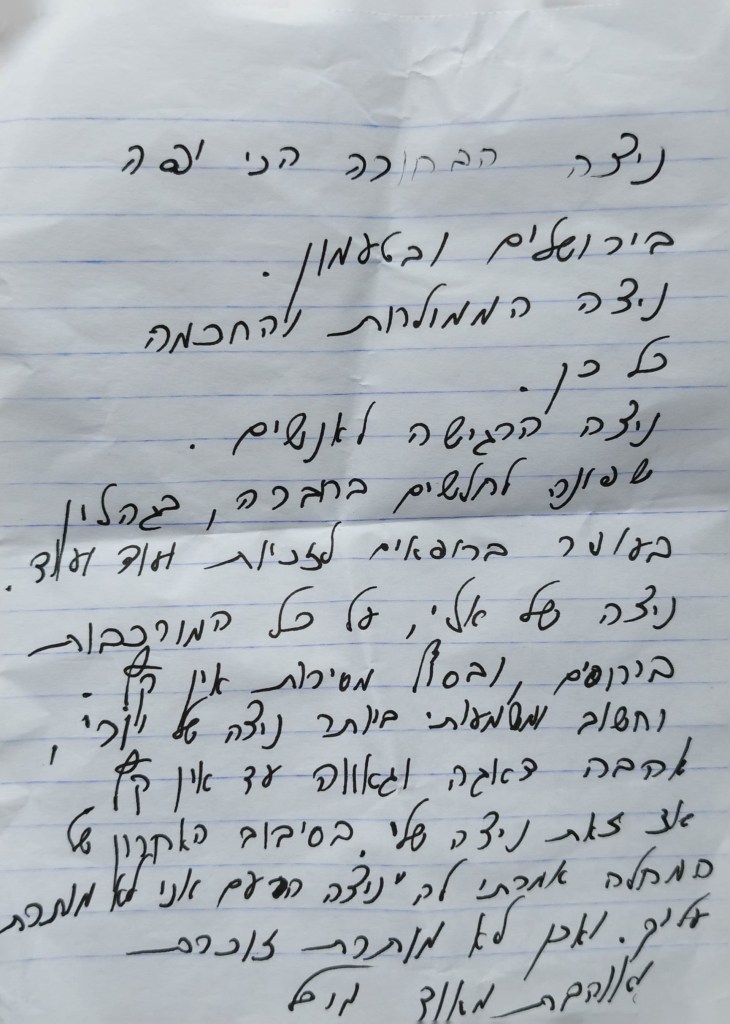 ניצה הבחורה הכי יפה
בירושלים ובטעמון.
ניצה הממולחת והחכמה
כל כך.
ניצה הרגישה לאנשים.
שפונה לחלשים בחברה,
בעוטר ברופאים לזכויות ועוד ועוד.
ניצה של אלי, על כל המורכבות
בירוקים, ובסוף מסירות אין קץ.
וחשוב ומשמעותי ביותר ניצה של
אהבה דאגה וגאווה עד אין קץ
אז זאת ניצה שלי. בסיבוב האחרון של
המחלה אמרתי לה "ניצה הפעם אני לא מוותרת
עליך. ואכן לא מוותרת זוכרת
ואוהבת מאוד מיכל